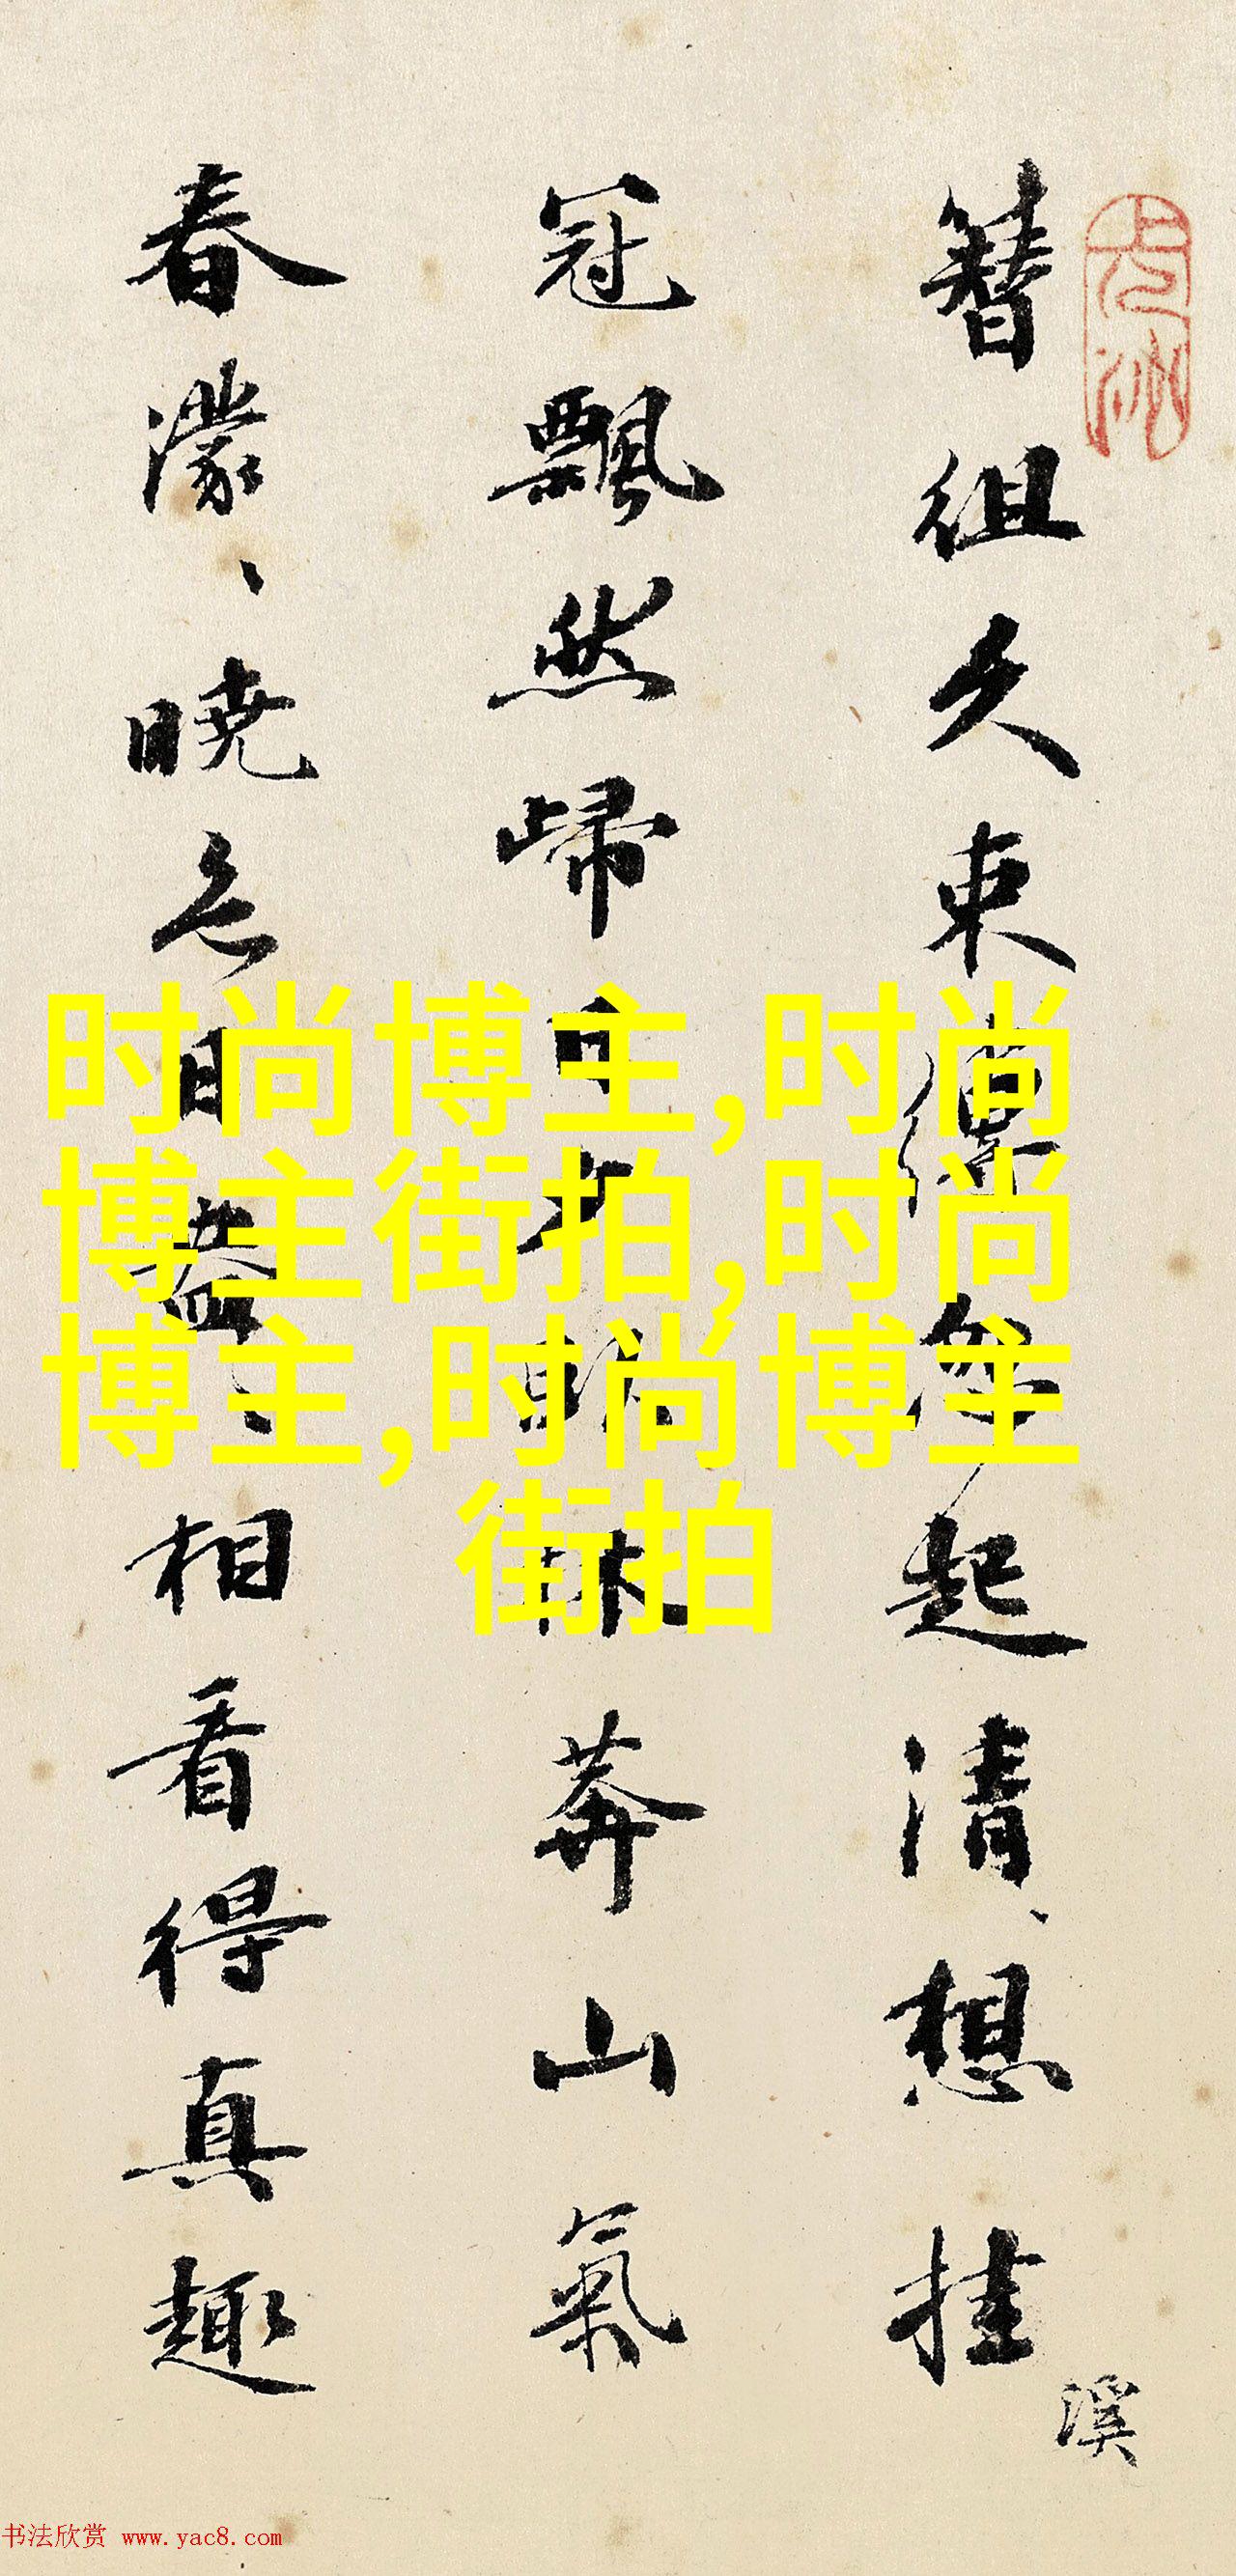 簪组久束缚忽起清、想挂
冠飘然歸
莽山氣
春濛、晓色日盎、相看得真趣
溪
时尚博主,时尚
博主街拍,时尚
博主,时尚博主
街拍
书法欣赏 www.yac8.com